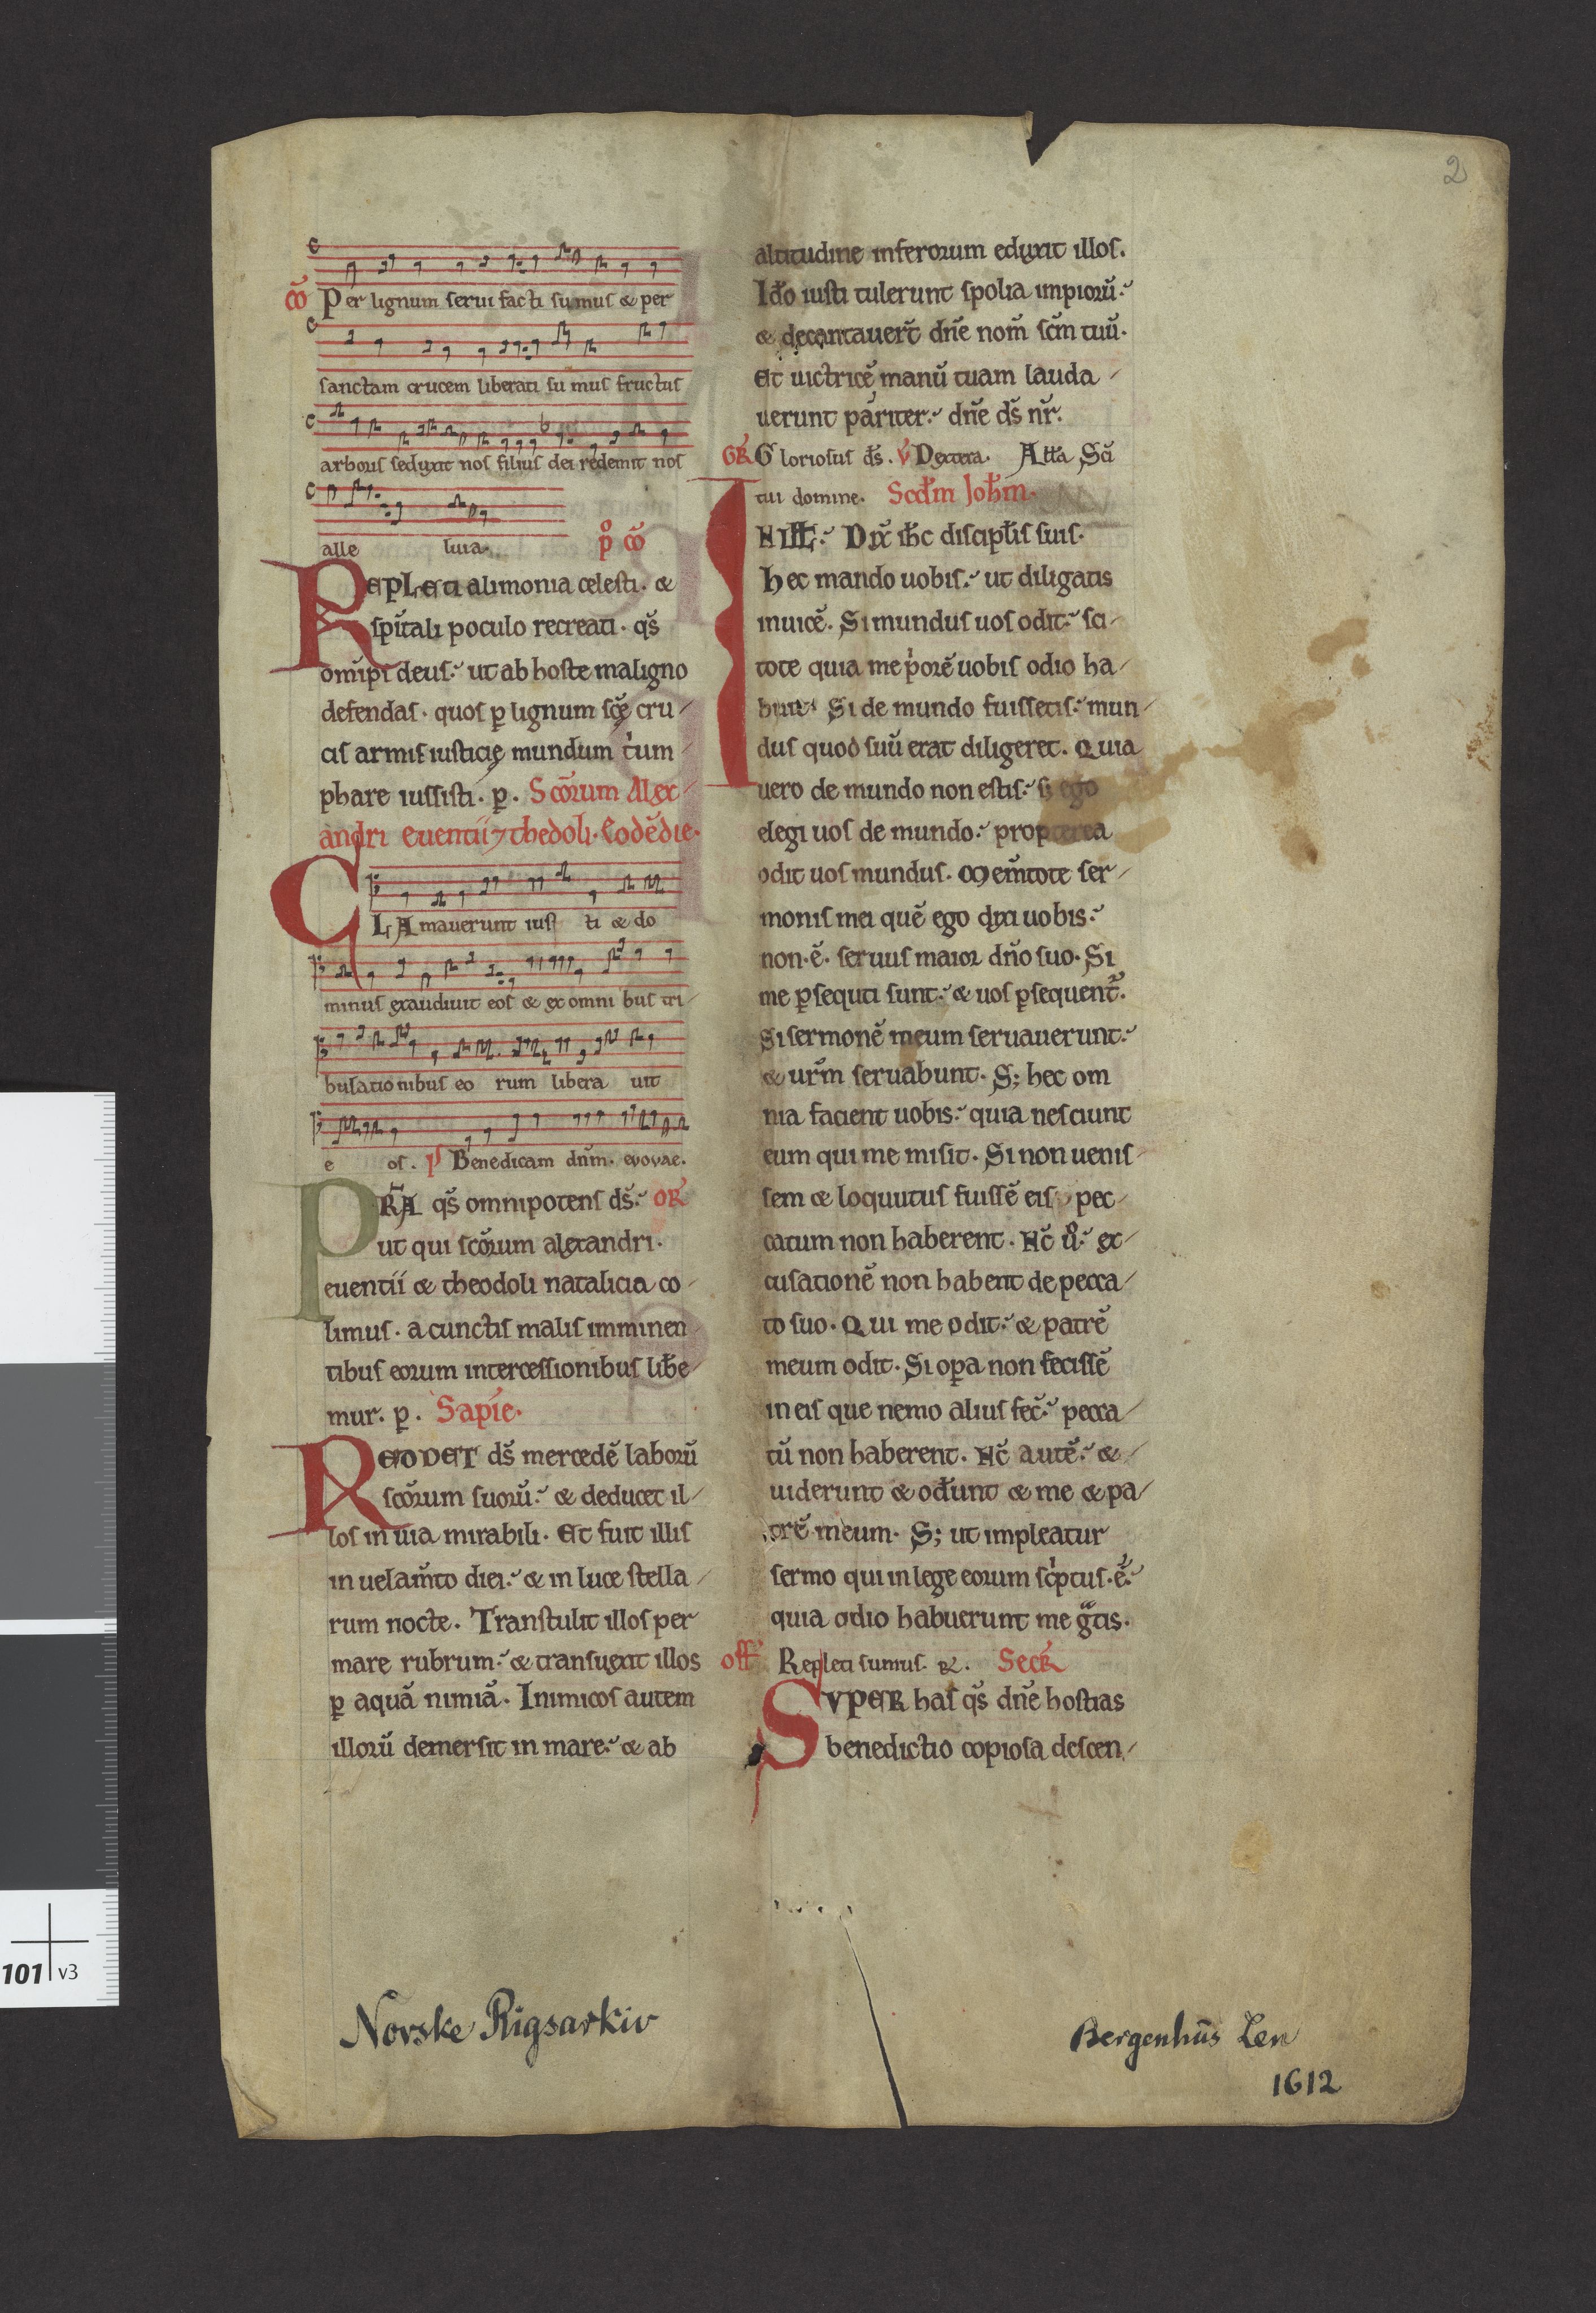 2
cō Per lignum serui facti sumus & per
sanctam crucem liberati su mus fructus
arboris seduxit nos filius dei redemit nos
alle luia. p̊ cō
Repleti alimonia celesti. &
sp̄itali poculo recreati. qs̄
om̄ipī deus. ut ab hoste maligno
defendas. quos ꝑ lignum sc̄ę cru
cis armis iusticię mundum tͥum
phare iussisti. ꝑ. Sc̄orum Alex
andri euentii ⁊ thedoli. Eodē die.
CLAmauerunt iusti & do
minus exaudiuit eos & ex omni bus tri
bulationibus eo rum libera uit
e os. p̄s Benedicam dn̄m. evovae.
PRA̅ qs̄ omnipotens ds̄. OR̄
ut qui sc̄orum alexandri.
euentii & theodoli natalicia co
limus. a cunctis malis imminen
tibus eorum intercessionibus lib̄e
mur. ꝑ. Sapiē.
REDDET ds̄ mercedē laborū
sc̄orum suorū. & deducet il
los in uia mirabili. Et fuit illis
in uelam̄to diei. & in luce stella
rum nocte. Transtulit illos per
mare rubrum. & transuexit illos
ꝑ aquā nimiā. Inimicos autem
illorū demersit in mare. & ab
altitudine inferorum eduxit illos.
Id̄o iusti tulerunt spolia impiorū.
& decantauer̄t dn̄e nom̄ sc̄m tuū.
Et uictricē manū tuam lauda
uerunt pariter. dn̄e ds̄ nr̄.
GR̄ Gloriosus ds̄. v̄ Dextera. All̄a Sc̄i
tui domine. Scd̄m Joh̄m.
IN ILL̄. Dix̄ ih̄c discipl̄is suis.
hec mando uobis. ut diligatis
inuicē. Si mundus uos odit. sci
tote quia me pͥorē uobis odio ha
buit. Si de mundo fuissetis. mun
dus quod suū erat diligeret. Quia
uero de mundo non estis. sꝫ ego
elegi uos de mundo. propterea
odit uos mundus. Mem̄tote ser
monis mei quē ego dixi uobis.
non .ē. seruus maior dn̄o suo. Si
me ꝑsequti sunt. & uos ꝑsequent᷑.
Si sermonē meum seruauerunt.
& ur̄m seruabunt. S; hec om
nia facient uobis. quia nesciunt
eum qui me misit. Si non uenis
sem & loqutus fuissē eis pec
catum non haberent. Nc̄ ů. ex
cusationē non habent de pecca
to suo. Qui me odit. & patrē
meum odit. Si oꝑa non fecissē
in eis que nemo alius fec̄. pecca
tū non haberent. Nc̄ autē. &
uiderunt & od̄unt & me & pa
trē meum. S; ut impleatur
sermo qui in lege eorum scͥptus .ē.
quia odio habuerunt me gͣtis.
off̄ Repleti sumus. R̷. Secr̄
SVPER has qs̄ dn̄e hostias
benedictio copiosa descen
Norske Rigsarkiv
Bergenhūs Len
1612
101 v3